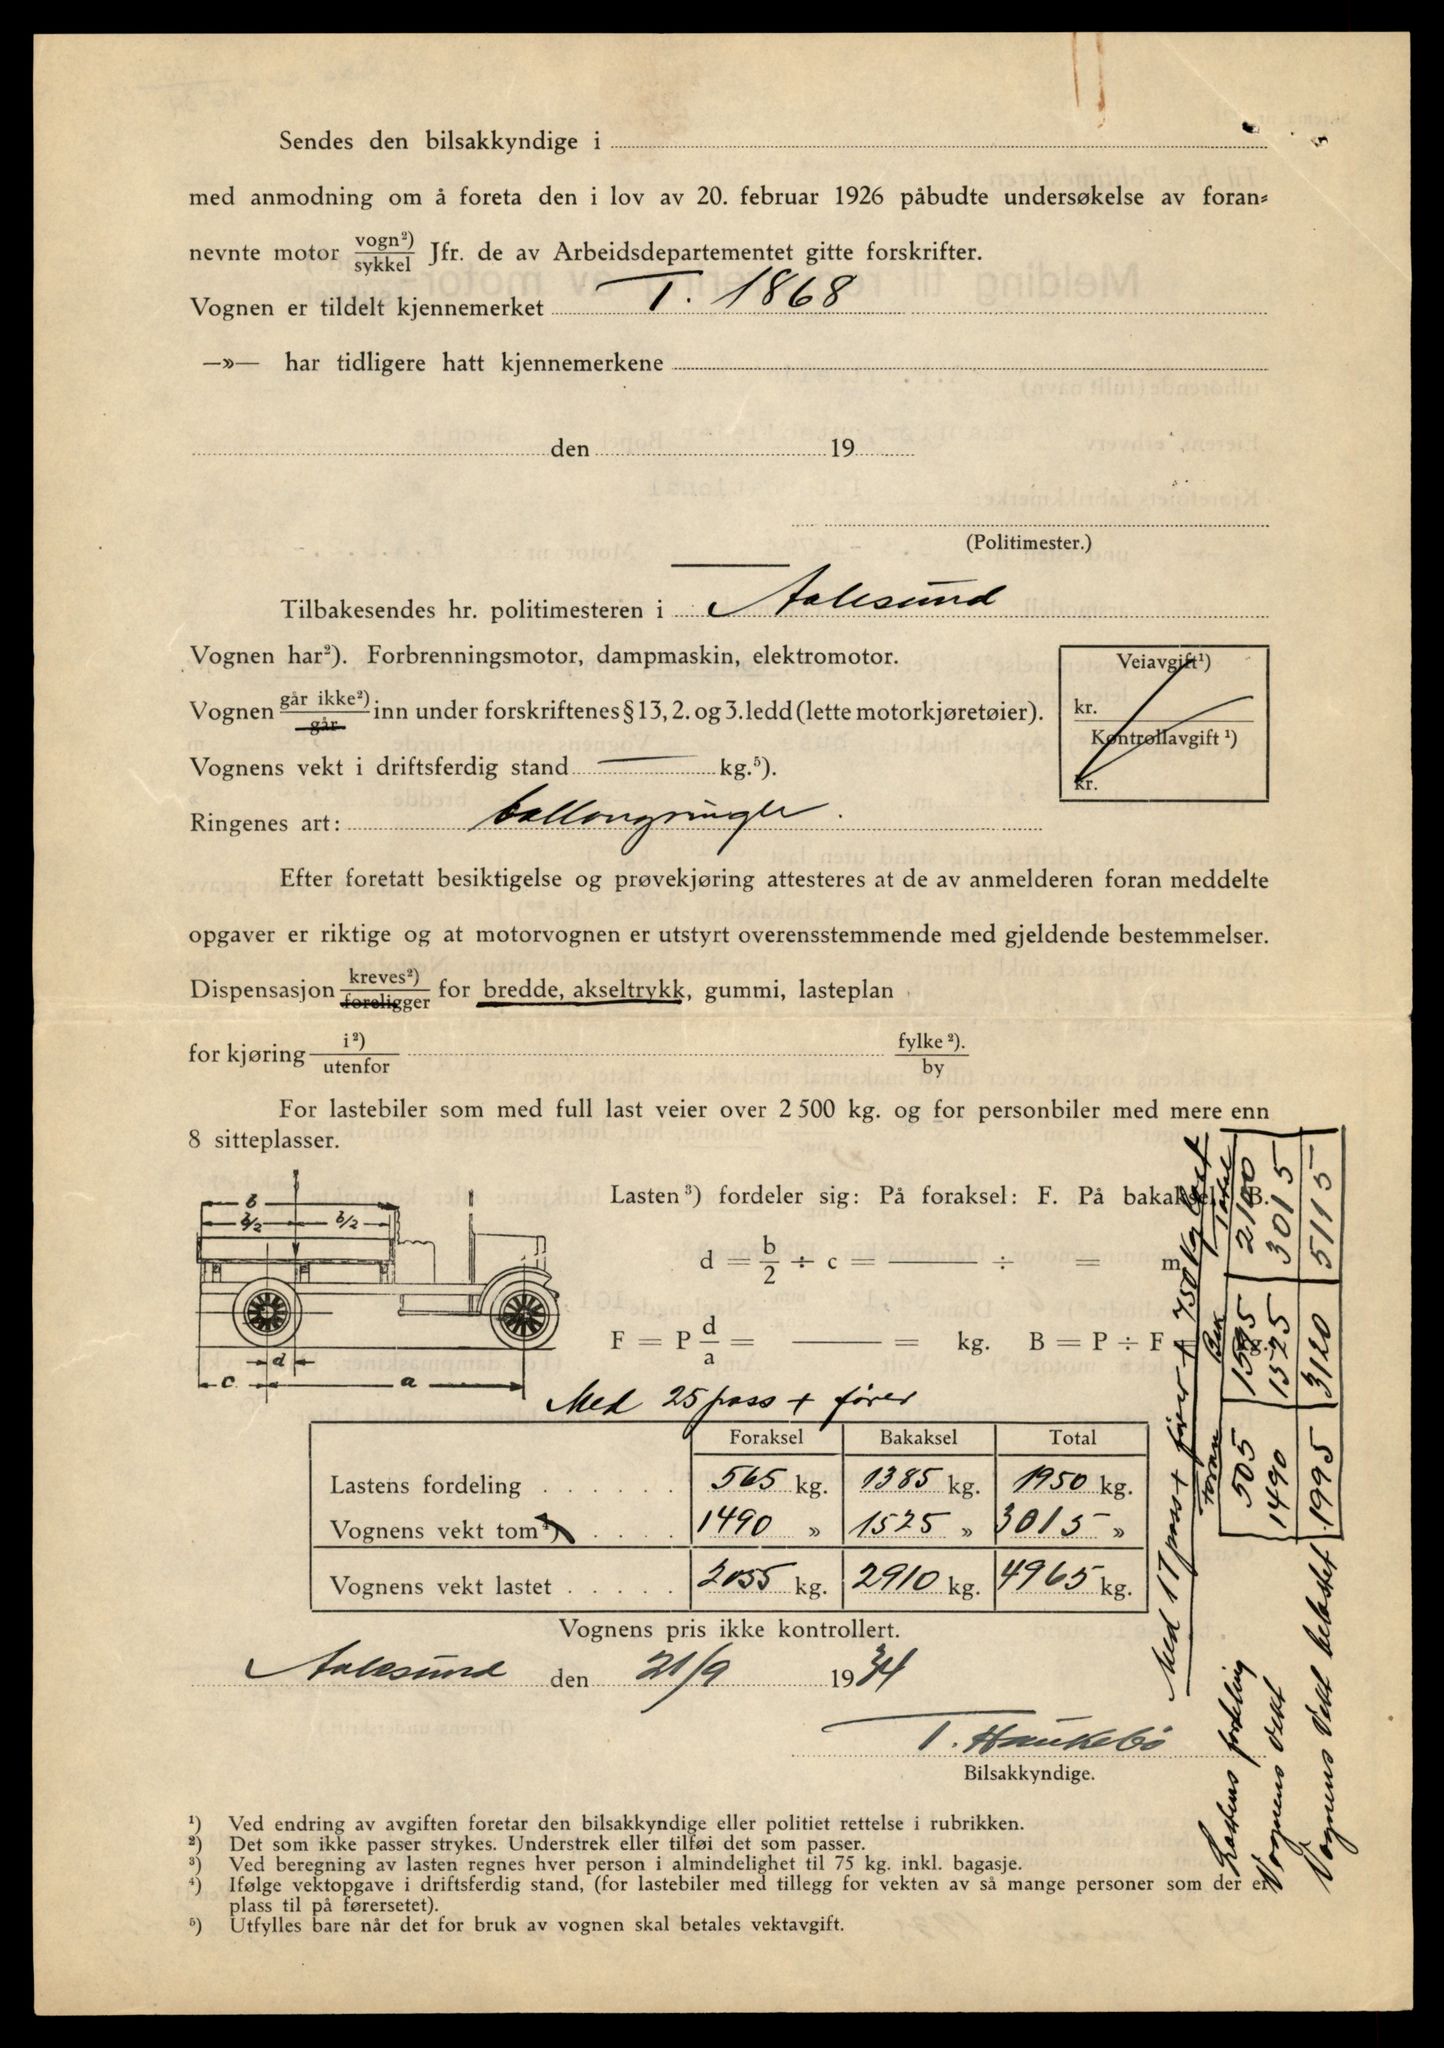 Sendes den bilsakkyndige i
med anmodning om å foreta den i lov av 20. februar 1926 påbudte undersøkelse av foran-
nevnte motor vogn²)/sykkel Jfr. de av Arbeidsdepartementet gitte forskrifter.
Vognen er tildelt kjennemerket T. 1868
—»— har tidligere hatt kjennemerkene
den 19
(Politimester.)
Tilbakesendes hr. politimesteren i Aalesund
Vognen har²). Forbrenningsmotor, dampmaskin, elektromotor.
Vognen går ikke²)/går inn under forskriftenes § 13, 2. og 3. ledd (lette motorkjøretøier).
Vognens vekt i driftsferdig stand — kg.⁵).
Ringenes art: ballongringer.
Veiavgift¹)
kr.
Kontrollavgift¹)
kr.
Efter foretatt besiktigelse og prøvekjøring attesteres at de av anmelderen foran meddelte
opgaver er riktige og at motorvognen er utstyrt overensstemmende med gjeldende bestemmelser.
Dispensasjon kreves²)/foreligger for bredde, akseltrykk, gummi, lasteplan
for kjøring i²)/utenfor fylke²)./by
For lastebiler som med full last veier over 2 500 kg. og for personbiler med mere enn
8 sitteplasser.
b
b/2 b/2
d
c a
Lasten³) fordeler sig: På foraksel: F. På bakaksel: B.
d = b/2 ÷ c = ——— ÷ = m
F = P d/a = ——— = kg. B = P ÷ F = kg.
Med 25 pass + fører
Foraksel Bakaksel Total
Lastens fordeling . . . . . . 565 kg. 1385 kg. 1950 kg.
Vognens vekt tom⁴) . . . . 1490 » 1525 » 3015 »
Vognens vekt lastet . . . . . 2055 kg. 2910 kg. 4965 kg.
Vognens pris ikke kontrollert.
Aalesund den 21/9 1934
T. Haukebø
Bilsakkyndige.
Med 17 pass + fører + 750 kg last
Foran Bak Total
Lastens fordeling 505 1595 2100
Vognens vekt 1490 1525 3015
Vognens vekt belastet 1995 3120 5115
¹) Ved endring av avgiften foretar den bilsakkyndige eller politiet rettelse i rubrikken.
²) Det som ikke passer strykes. Understrek eller tilføi det som passer.
³) Ved beregning av lasten regnes hver person i almindelighet til 75 kg. inkl. bagasje.
⁴) Ifølge vektopgave i driftsferdig stand, (for lastebiler med tillegg for vekten av så mange personer som der er
plass til på førersetet).
⁵) Utfylles bare når det for bruk av vognen skal betales vektavgift.